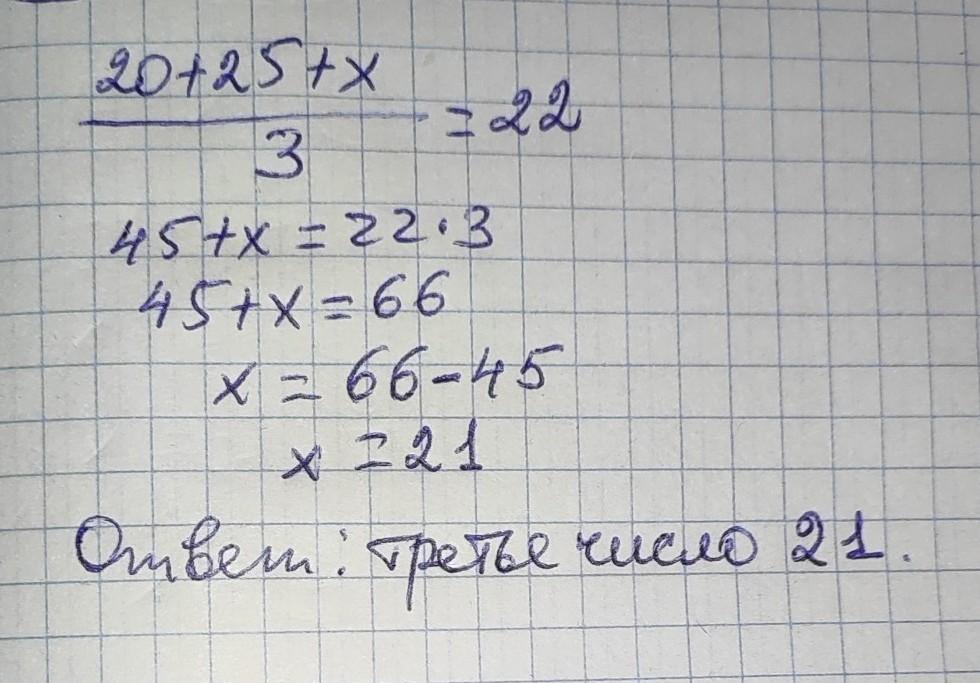 20+25+x
3
=22
45+x=22·3
45+x=66
x=66-45
x=21
Ответ: третье число 21.